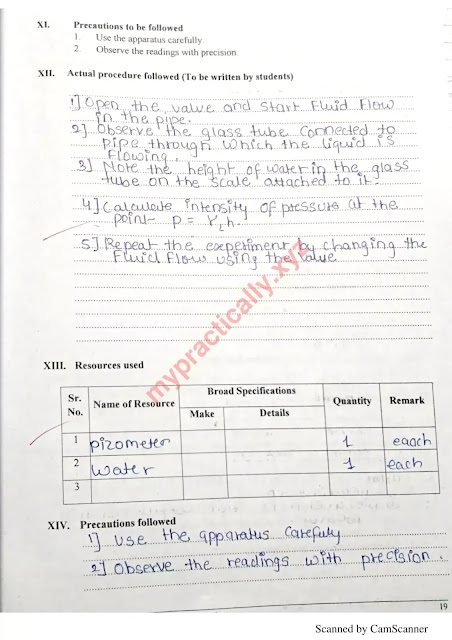 XI. Precautions to be followed
1. Use the apparatus carefully.
2. Observe the readings with precision.
XII. Actual procedure followed (To be written by students)
1] Open the valve and start Fluid Flow
in the pipe.
2] Observe the glass tube connected to
pipe through which the liquid is
flowing.
3] Note the height of water in the glass
tube on the scale attached to it.
4] Calculate intensity of pressure at the
point P = γLh.
5] Repeat the experiment by changing the
Fluid Flow using the value
mypractically.xyz
XIII. Resources used
Sr. No. Name of Resource Broad Specifications Quantity Remark
Make Details
1 pizometer 1 eaoch
2 water 1 each
3
XIV. Precautions followed
1] Use the apparatus carefully
2] Observe the readings with precision.
19
Scanned by CamScanner